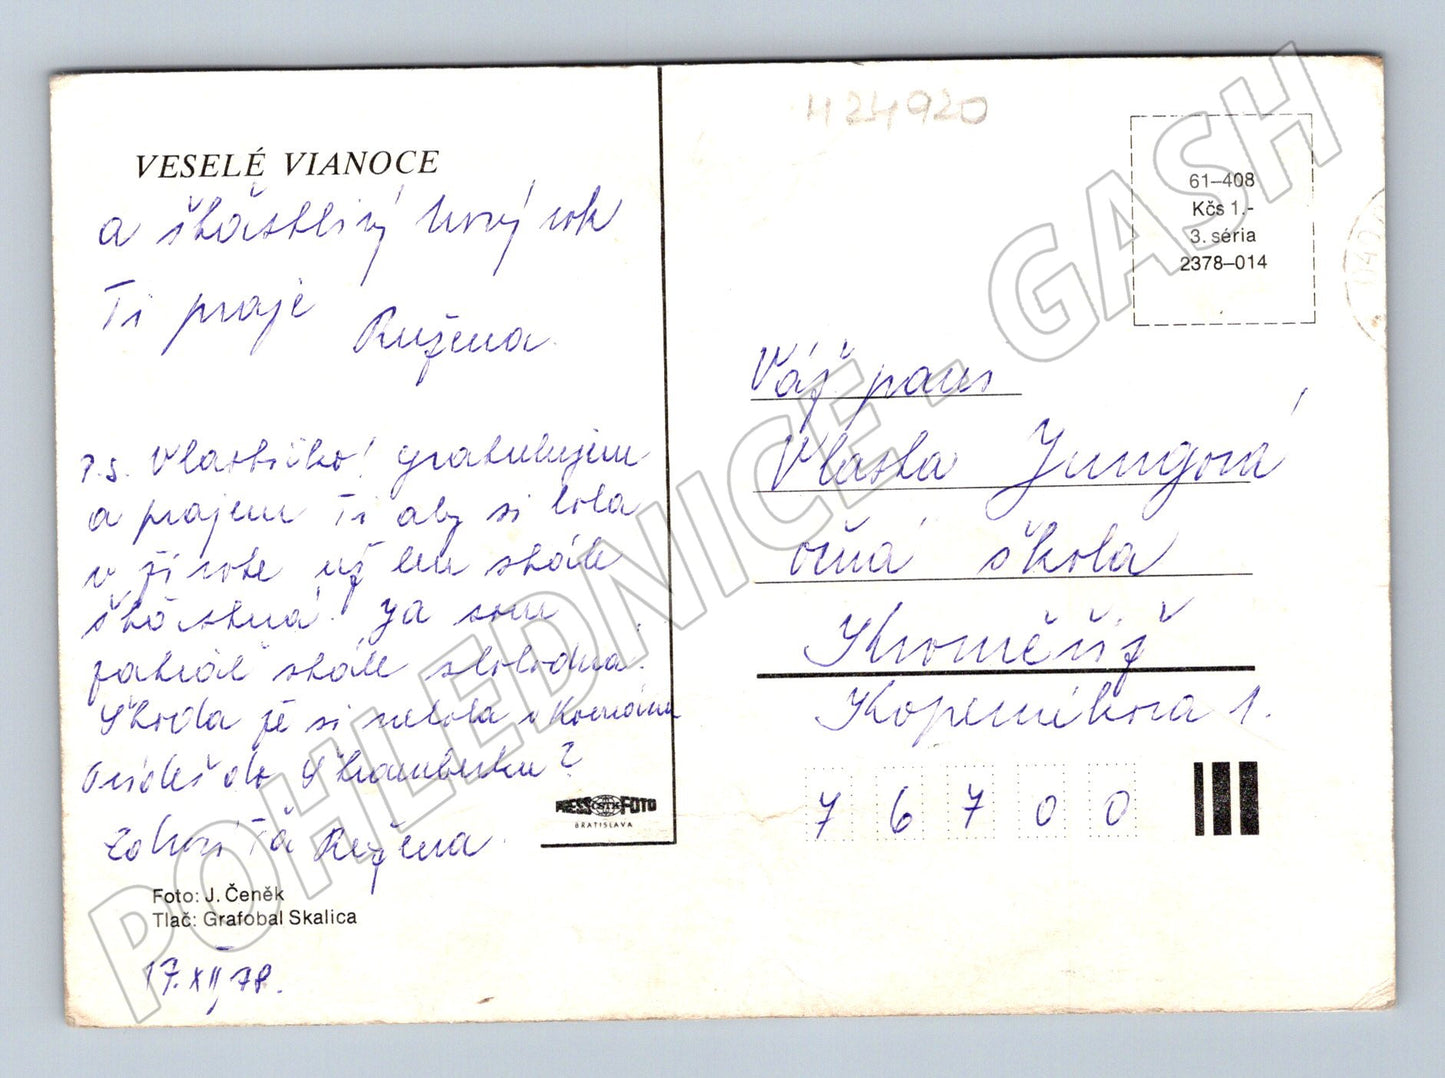 H24920
VESELÉ VIANOCE
a šťastlivý nový rok
Ti praje
Ružena.
P.S. Vlastičko! gratulujem
a prajem Ti aby si bola
v živote už len stále
šťastná. Ja som
zatiaľ stále slobodná.
Škoda že si nebola v Komárne
Prídeš do Štramberku?
Zdraví Ťa Ružena
PRESS ČSTK FOTO
BRATISLAVA
Foto: J. Čeněk
Tlač: Grafobal Skalica
17.XII.78.
61–408
Kčs 1.-
3. séria
2378–014
Váž. pani
Vlasta Jungová
očná škola
Kroměříž
Koperníkova 1.
76700
POHLEDNICE - GASH